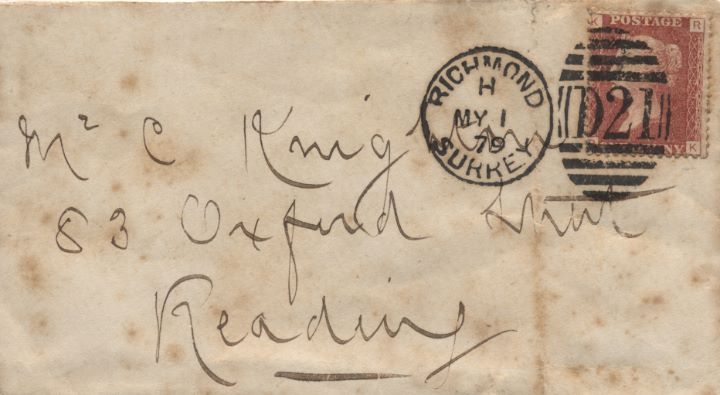 POSTAGE
K R
RICHMOND
H
MY 1
79
SURREY
D21
NY K
Mr C
83 Oxford Street
Reading